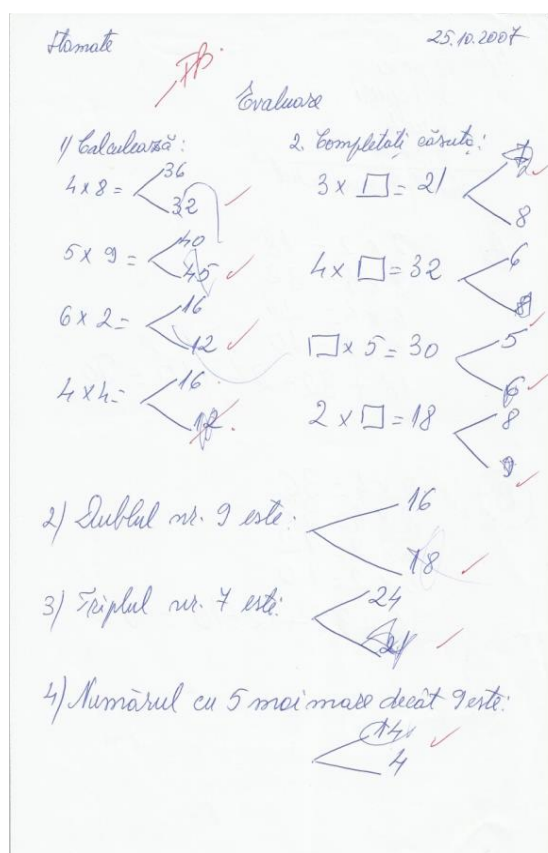 Stamate 25.10.2007
FB.
Evaluare
1) Calculează:
4 x 8 = 36
32
5 x 9 = 40
45
6 x 2 = 16
12
4 x 4 = 16
12
2. Completati căsuța:
3 x □ = 21 7
8
4 x □ = 32 6
8
□ x 5 = 30 5
6
2 x □ = 18 8
9
2) Dublul nr. 9 este: 16
18
3) Triplul nr. 7 este: 24
21
4) Numărul cu 5 mai mare decât 9 este:
14
4